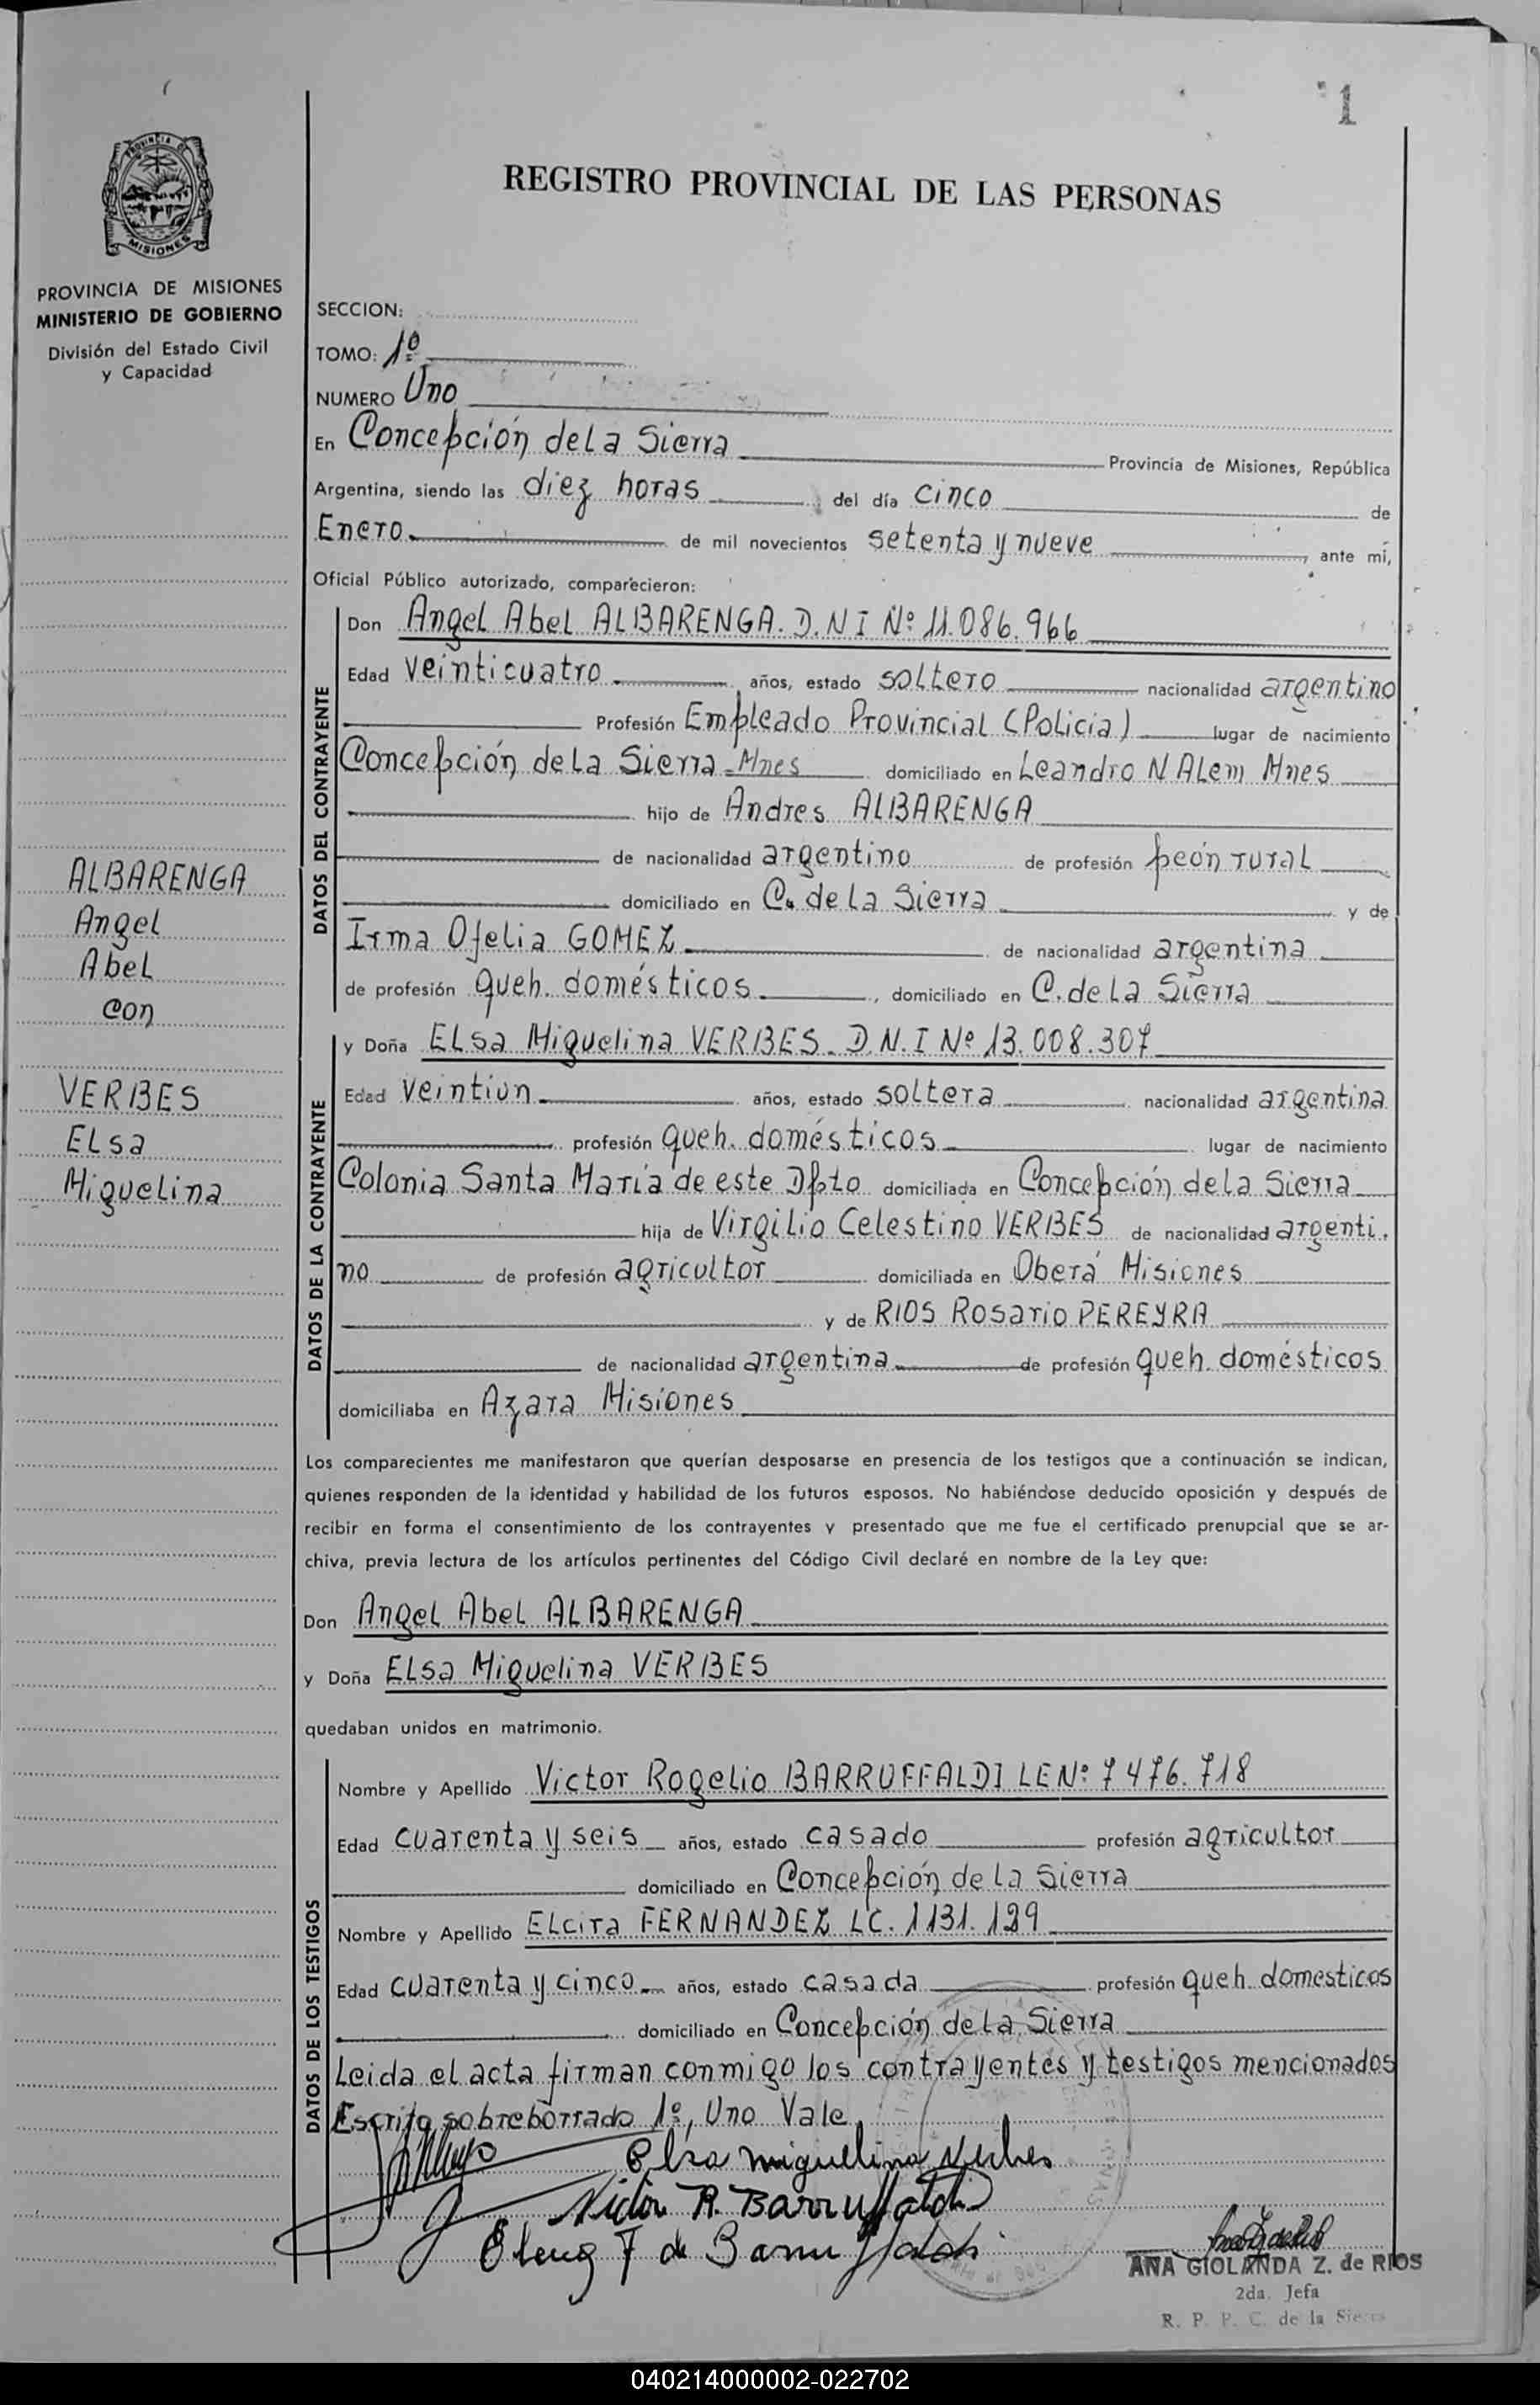 1
PROVINCIA DE
MISIONES
PROVINCIA DE MISIONES
MINISTERIO DE GOBIERNO
División del Estado Civil
y Capacidad
ALBARENGA
Angel
Abel
con
VERBES
Elsa
Miguelina
REGISTRO PROVINCIAL DE LAS PERSONAS
SECCION:
TOMO: 1º
NUMERO Uno
En Concepción de la Sierra Provincia de Misiones, República
Argentina, siendo las diez horas del día cinco de
Enero de mil novecientos setenta y nueve, ante mí,
Oficial Público autorizado, comparecieron:
DATOS DEL CONTRAYENTE
Don Angel Abel ALBARENGA. D.N I Nº 11.086.966
Edad veinticuatro, años, estado soltero nacionalidad argentino
Profesión Empleado Provincial (Policia) lugar de nacimiento
Concepción de la Sierra = Mnes domiciliado en Leandro N Alem Mnes
hijo de Andres ALBARENGA
de nacionalidad argentino de profesión peón rural
domiciliado en C. de la Sierra y de
Irma Ofelia GOMEZ de nacionalidad argentina
de profesión queh. domésticos, domiciliado en C. de la Sierra
DATOS DE LA CONTRAYENTE
y Doña Elsa Miguelina VERBES. D.N.I Nº 13.008.307
Edad veintiun años, estado soltera nacionalidad argentina
profesión queh. domésticos lugar de nacimiento
Colonia Santa María de este Dpto domiciliada en Concepción de la Sierra
hija de Virgilio Celestino VERBES de nacionalidad argenti.
no de profesión agricultor domiciliada en Oberá Misiones
y de RIOS Rosario PEREYRA
de nacionalidad argentina de profesión queh. domésticos
domiciliaba en Azara Misiones
Los comparecientes me manifestaron que querían desposarse en presencia de los testigos que a continuación se indican,
quienes responden de la identidad y habilidad de los futuros esposos. No habiéndose deducido oposición y después de
recibir en forma el consentimiento de los contrayentes y presentado que me fue el certificado prenupcial que se ar-
chiva, previa lectura de los artículos pertinentes del Código Civil declaré en nombre de la Ley que:
Don Angel Abel ALBARENGA
y Doña Elsa Miguelina VERBES
quedaban unidos en matrimonio.
DATOS DE LOS TESTIGOS
Nombre y Apellido Victor Rogelio BARRUFFALDI LE Nº 7476.718
Edad cuarenta y seis años, estado casado profesión agricultor
domiciliado en Concepción de la Sierra
Nombre y Apellido Elcira FERNANDEZ LC. 1131.129
Edad cuarenta y cinco años, estado casada profesión queh. domesticos
domiciliado en Concepción de la Sierra
Leida el acta firman conmigo los contrayentes y testigos mencionados
Escrito sobreborrado 1º, Uno Vale
Elsa Miguelina Verbes
Victor R. Barruffaldi
F de Barruffaldi
ANA GIOLANDA Z. de RIOS
2da. Jefa
R. P. P. C. de la Sierra
040214000002-022702